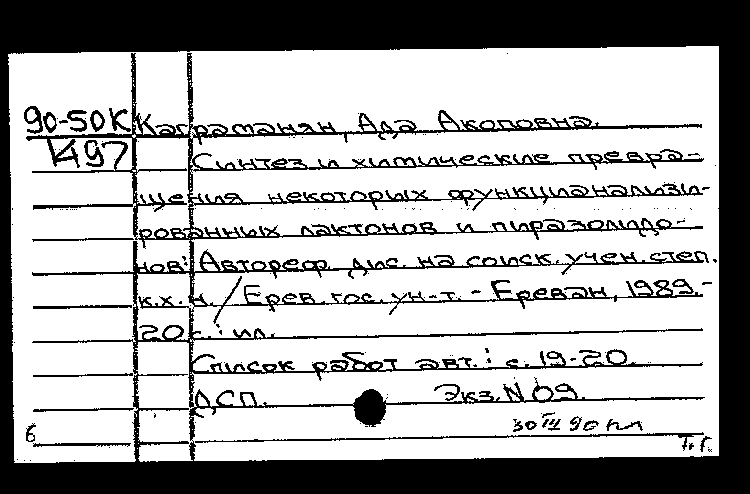 90-50К Каграманян, Ада Акоповна.
К497 Синтез и химические превра-
щения некоторых функцианализи-
рованных лактонов и пиразолидо-
нов: Автореф. дис. на соиск. учен. степ.
к.х.н. / Ерев. гос. ун-т. - Ереван, 1989.-
20 с.: ил.
Список работ авт.: с. 19-20.
ДСП. Экз. N 09.
30 III 90 пл
б
Т. Г.